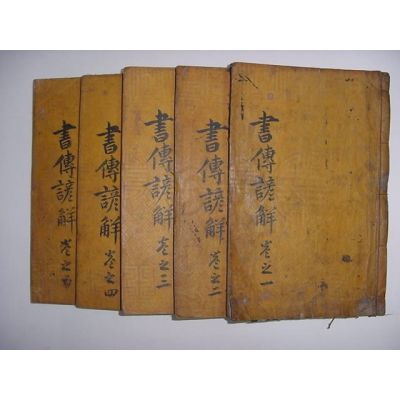 書傳諺解 卷之一
書傳諺解 卷之二
書傳諺解 卷之三
書傳諺解 卷之四
書傳諺解 卷之